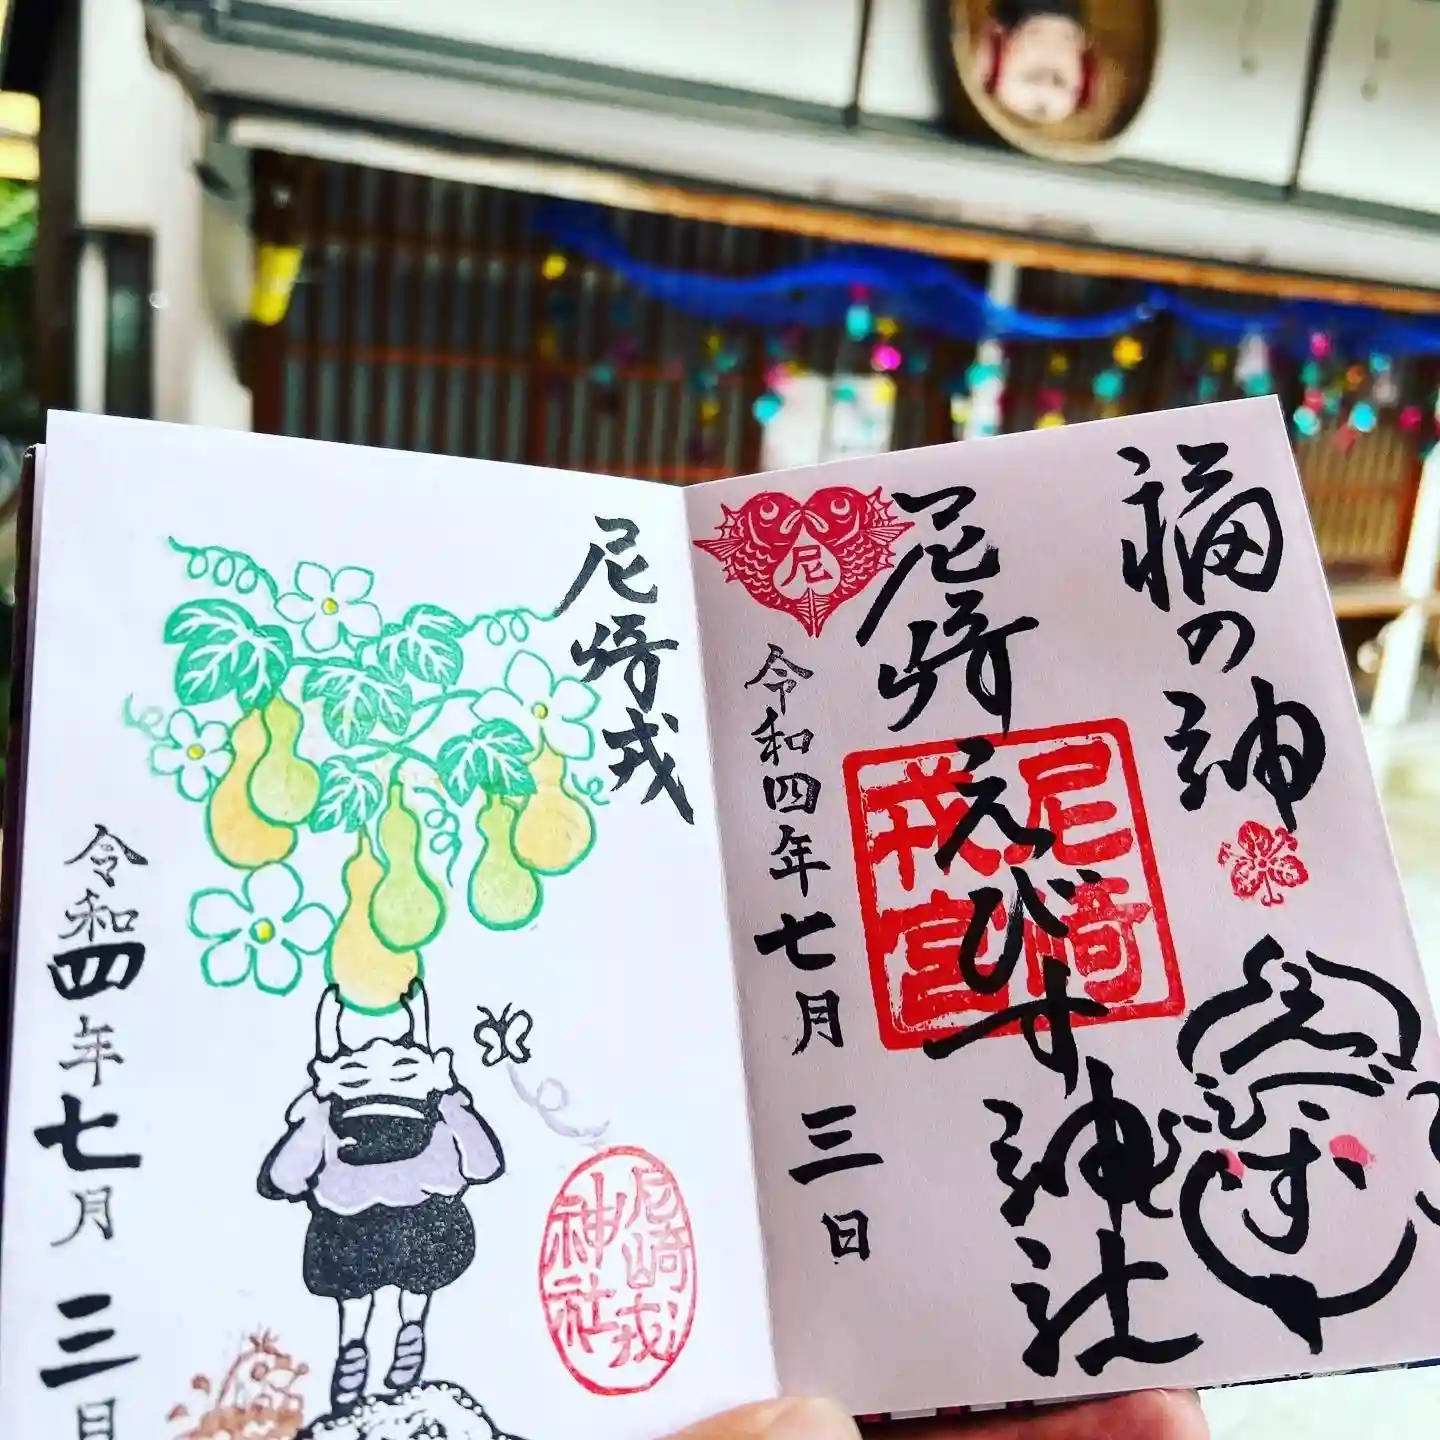 福の神
尼崎えびす神社
尼崎
戎宮
えびす
尼
令和四年七月三日
尼崎戎
尼崎戎
神社
令和四年七月三日